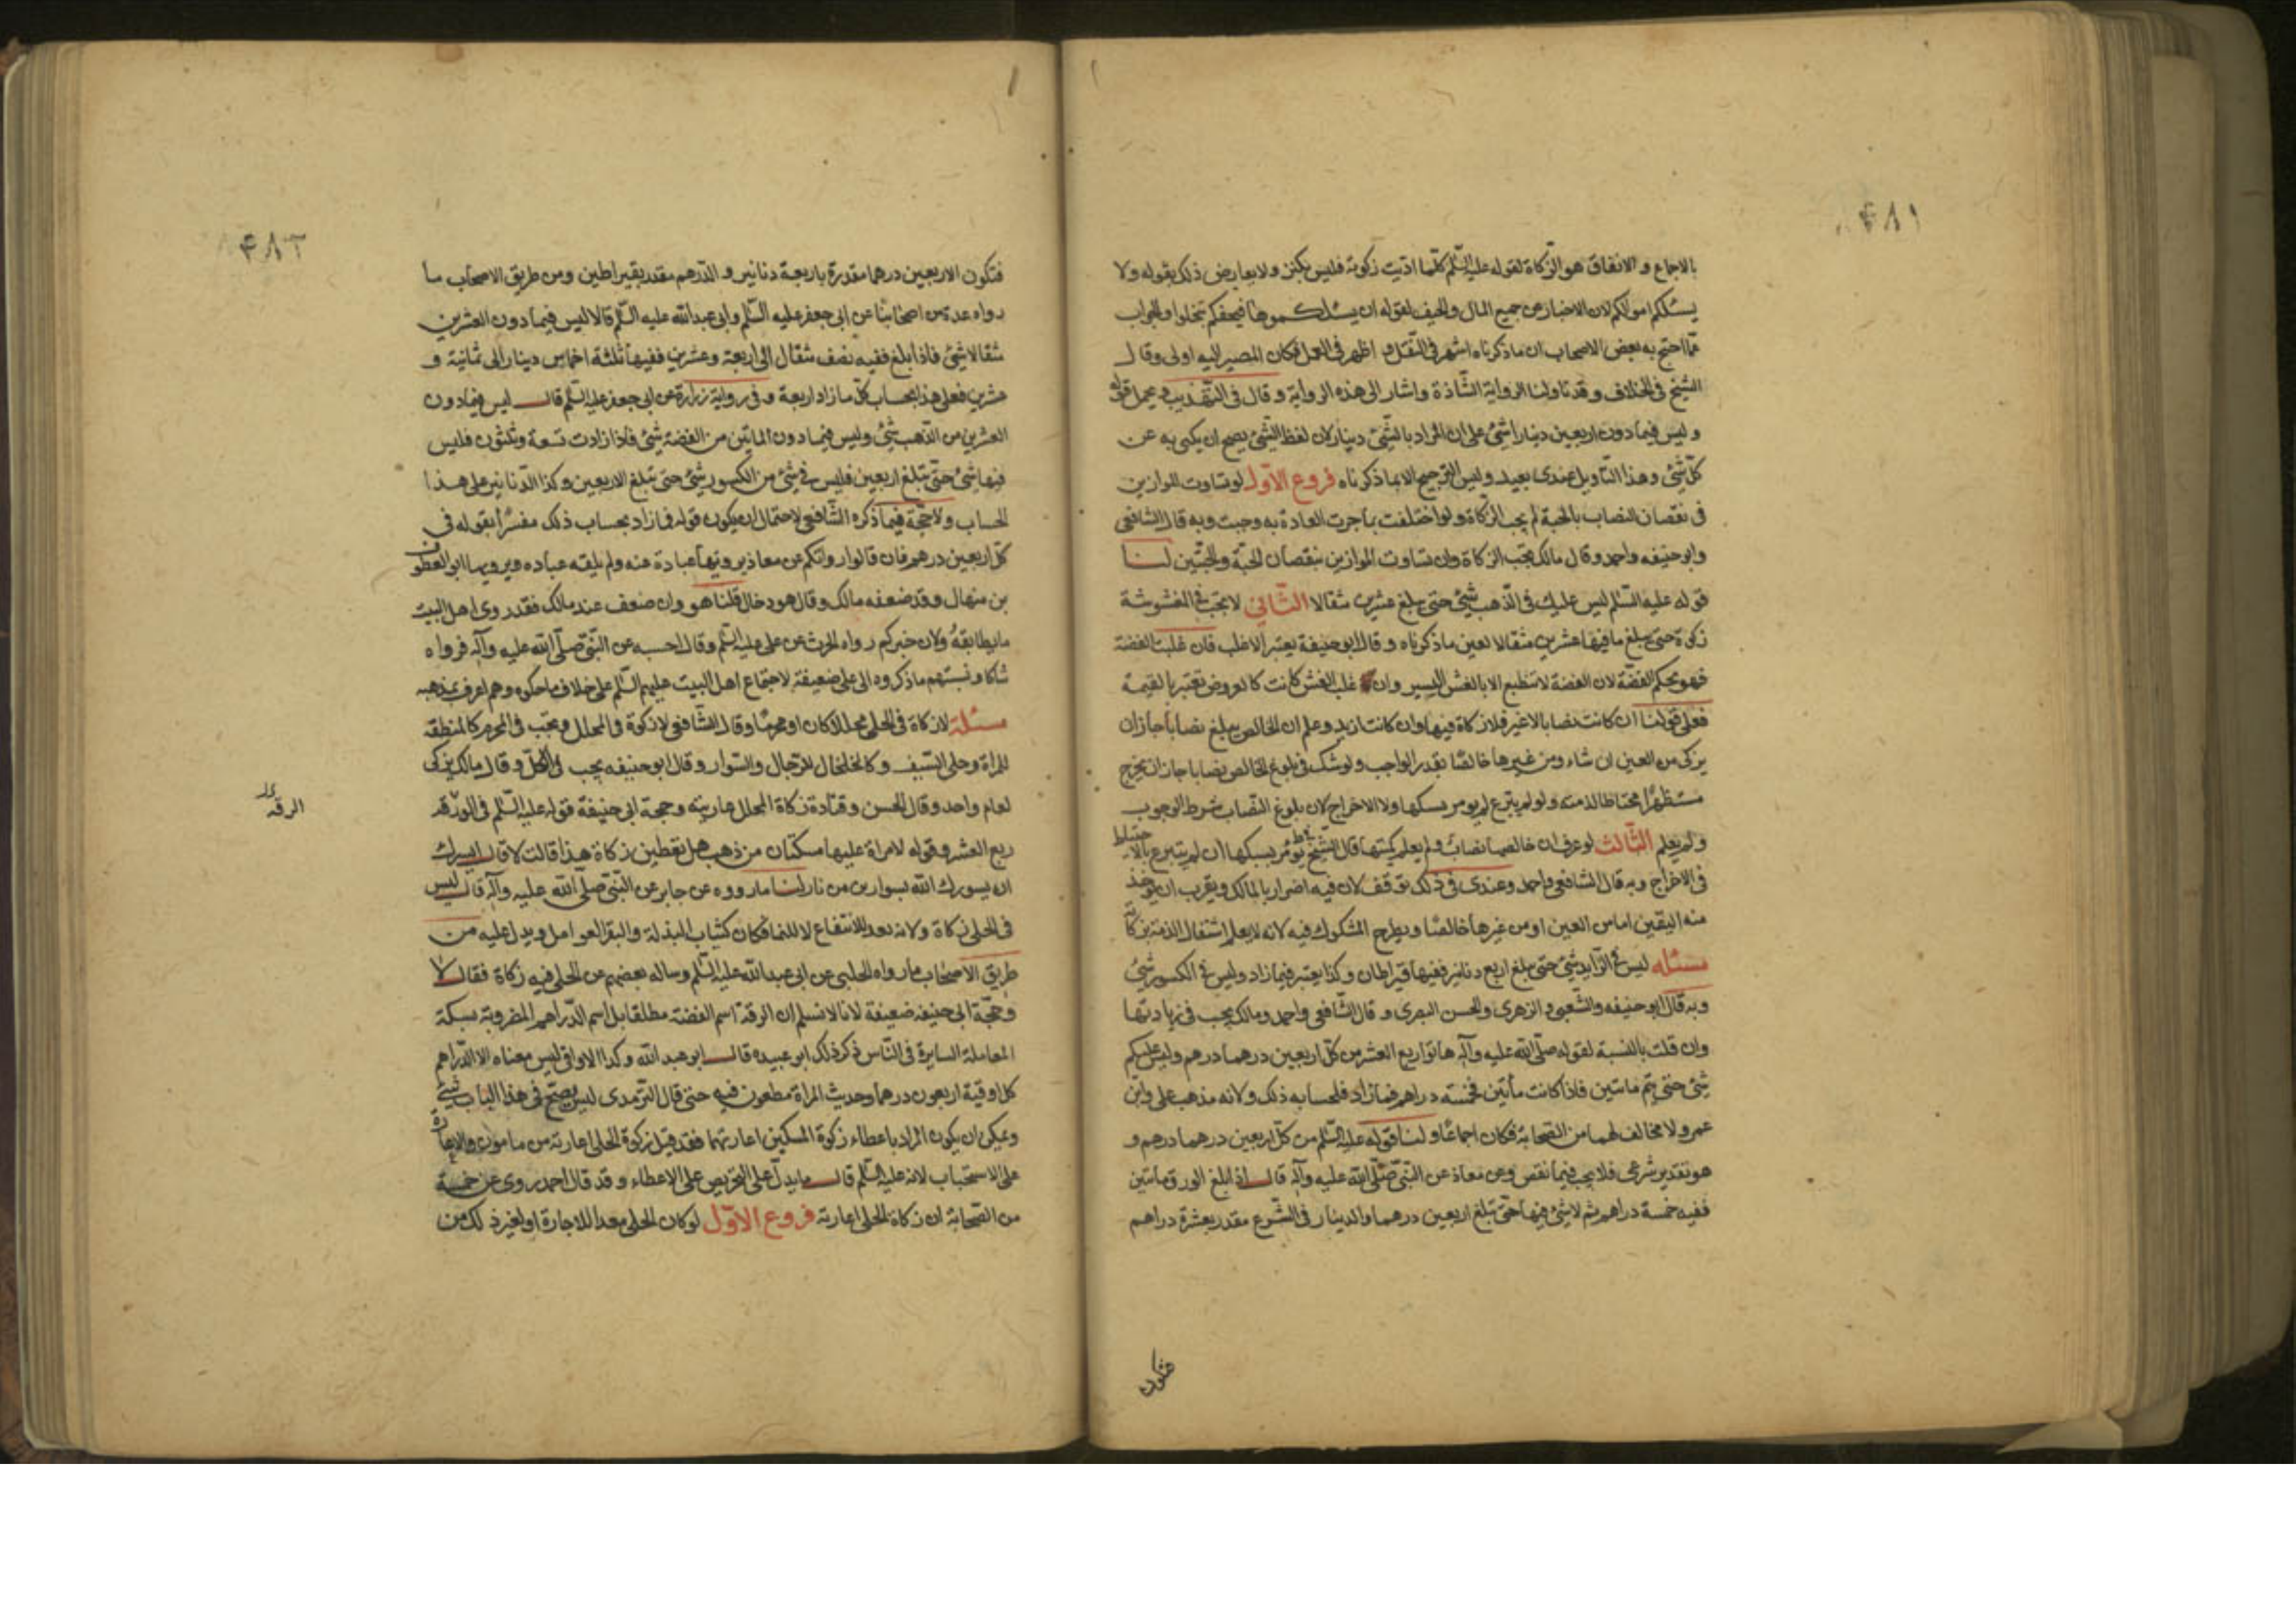 ۴۸۱
بالاجماع و الانفاق هو الزكاة لقوله عليه السّلم كلّما ادّيت زكوته فليس بكنز ولا يعارض ذلك بقوله ولا
يسئلكم اموالكم لان الاخبار عن جميع المال والحيف لقوله ان يسئلكموها فيحفكم تبخلوا والجواب
عمّا احتج به بعض الاصحاب ان ما ذكرناه اشهر فى النّقل و اظهر فى العمل فكان المصير اليه اولى وقال
الشيخ فى الخلاف وقد تاولنا الرواية الشاذة واشار الى هذه الرواية وقال فى التهذيب يحمل قوله
وليس فيما دون اربعين دينارا شئ على ان المراد بالشئ دينار لان لفظ الشّئ يصح ان يكنى به عن
كلّ شئ وهذا التأويل عندى بعيد وليس الترجيح الا بما ذكرناه فروع الاوّل لو تساوت الموازين
فى نقصان النصاب بالحبة لم يجب الزكاة ولو اختلفت بما جرت العادة به وجبت وبه قال الشافعى
وابو حنيفه واحمد وقال مالك يجب الزكاة وان تساوت الموازين بنقصان الحبّة والحبّتين لنا
قوله عليه السّلم ليس عليك فى الذّهب شئ حتى يبلغ عشرين مثقالا الثّانى لا يجب فى المغشوشة
زكوة حتى يبلغ ما فيها عشرين مثقالا لعين ما ذكرناه وقال ابو حنيفة يعتبر الاغلب فان غلبت الفضة
فهو بحكم الفضّة لان الفضة لا تنطبع الا بالغش اليسير وان غلب الغش كانت كالعروض تعتبر بالقيمة
فعلى قولنا ان كانت نصابا لا غير فلا زكاة فيها وان كانت ازيد وعلم ان الخالص يبلغ نصابا جاز ان
يزكى من العين ان شاء ومن غيرها خالصًا بقدر الواجب ولو شك فى بلوغ الخالص نصابا جاز ان يخرج
مستظهرًا محتاطا لذمته ولو لم يتبرع لم يومر بسبكها ولا الاخراج لان بلوغ النصاب شرط الوجوب
ولم يعلم الثّالث لو عرف ان خالصها نصاب ولم يعلم كميتها قال الشّيخ ط يؤمر بسبكها ان لم يتبرع بالاحتياط
فى الاخراج وبه قال الشافعى واحمد وعندى فى ذلك توقف لان فيه اضرار بالمالك ويقرب ان يؤخذ
منه اليقين اما من العين او من غيرها خالصًا ويطرح المشكوك فيه لانه لا يعلم اشتغال الذمة بزكاته
مسئله ليس فى الزّايد شئ حتى يبلغ اربع دنانير ففيها قيراطان وكذا يعتبر فيما زاد وليس فى الكسور شئ
وبه قال ابو حنيفه والشّعبى و الزهرى والحسن البصرى وقال الشّافعى واحمد ومالك يجب فى زيادتها
وان قلت بالنسبة لقوله صلّى اللّه عليه وآله هاتوا ربع العشر من كلّ اربعين درهما درهم وليس عليكم
شئ حتى يتم مأتين فاذا كانت مأتين فخمسة دراهم فما زاد فبحسابه ذلك ولانه مذهب على وابن
عمر ولا مخالف لهما من الصّحابة فكان اجماعًا ولنا قوله عليه السّلم من كلّ اربعين درهما درهم و
هو تقدير شرعى فلا يجب فيما نقص وعن معاذ عن النّبى صلّى اللّه عليه وآله قال اذا بلغ الورق مأتين
ففيه خمسة دراهم ثم لا شئ فيها حتى تبلغ اربعين درهما والدينار فى الشّرع مقدر بعشرة دراهم
فتكون
۴۸۲
فتكون الاربعين درهما مقدرة باربعة دنانير و الدّرهم مقدر بقيراطين ومن طريق الاصحاب ما
رواه عدة من اصحابنا عن ابى جعفر عليه السّلم وابى عبداللّه عليه السّلم قالا ليس فيما دون العشرين
مثقالا شئ فاذا بلغ ففيه نصف مثقال الى اربعة وعشرين ففيها ثلثة اخماس دينار الى ثمانية و
عشرين فعلى هذا بحساب كلّما زاد اربعة وفى رواية زرارة عن ابى جعفر عليه السّلم قال ليس فيما دون
العشرين من الذّهب شئ وليس فيما دون الماتين من الفضة شئ فاذا زادت تسعة وثلثون فليس
فيها شئ حتّى تبلغ اربعين فليس فى شئ من الكسور شئ حتى تبلغ الاربعين وكذا الدّنانير على هذا
الحساب ولا حجّة فيما ذكره الشّافعى لاحتمال ان يكون قوله فما زاد بحساب ذلك مفسّرًا بقوله فى
كلّ اربعين درهم فان قالوا روايتكم عن معاذ يرويها عبادة عنه ولم يلقه عباده ويرويها ابو العطوف
بن منهال وقد ضعفه مالك وقال هو دجال قلنا هو وان ضعف عند مالك فقد روى اهل البيت
ما يطابقهُ ولان خبركم رواه الحرث عن على عليه السّلم وقال احسبه عن النّبى صلّى اللّه عليه وآله فرواه
شاكا ونسبتهم ما ذكروه الى على ضعيفة لاجتماع اهل البيت عليهم السّلم على خلاف ما حكوه وهم اعرف بمذهبه
مسئلة لا زكاة فى الحلى محللا كان او محرمًا وقال الشّافعى لا زكوة فى المحلل ويجب فى المحرم كالمنطقة
للمراة وحلى السّيف وكالخلخال للرّجال والسّوار وقال ابو حنيفه يجب فى الكل وقال مالك يزكى
لعام واحد وقال الحسن وقتادة زكاة المحلل عاريته وحجة ابى حنيفة قوله عليه السّلم فى الورقه
الرقه
ربع العشر وقوله لامراة عليها مسكتان من ذهب هل تعطين زكاة هذا قالت لا قال ايسرك
ان يسورك اللّه بسوارين من نار لنا ما رووه عن جابر عن النّبى صلّى اللّه عليه وآله قال ليس
فى الحلى زكاة ولانه معد للانتفاع لا للنماء فكان كثياب البذلة والبقر العوامل ويدل عليه من
طريق الاصحاب ما رواه الحلبى عن ابى عبداللّه عليه السّلم وساله بعضهم عن الحلى فيه زكاة فقال لا
وحجّة ابى حنيفه ضعيفة لانا لا نسلم ان الرقة اسم الفضة مطلقا بل اسم الدّراهم المضروبة بسكة
المعاملة السايرة فى النّاس ذكر ذلك ابو عبيده قال ابو عبد اللّه وكذا الاواقى ليس معناه الا الدّراهم
كل اوقية اربعون درهما وحديث المراة مطعون فيه حتى قال الترمذى ليس يصحّ فى هذا الباب شئ
ويمكن ان يكون المراد باعطاء زكوة المسكين اعارتهما فقد قيل زكوة الحلى اعارته من مامون والاعارة
على الاستحباب لانه عليه السّلم قال ما يدلّ على التحريص على الاعطاء وقد قال احمد روى عن خمسة
من الصّحابة ان زكاة الحلى اعارته فروع الاوّل لو كان الحلى معدا للاجارة او لغير ذلك من